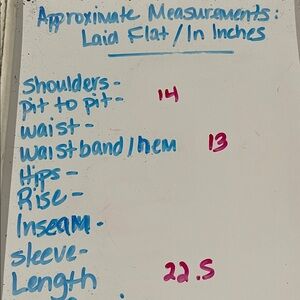 Approximate Measurements:
Laid Flat/In Inches
Shoulders-
pit to pit- 14
waist-
waistband/hem 13
Hips-
Rise-
Inseam-
sleeve-
Length 22.5